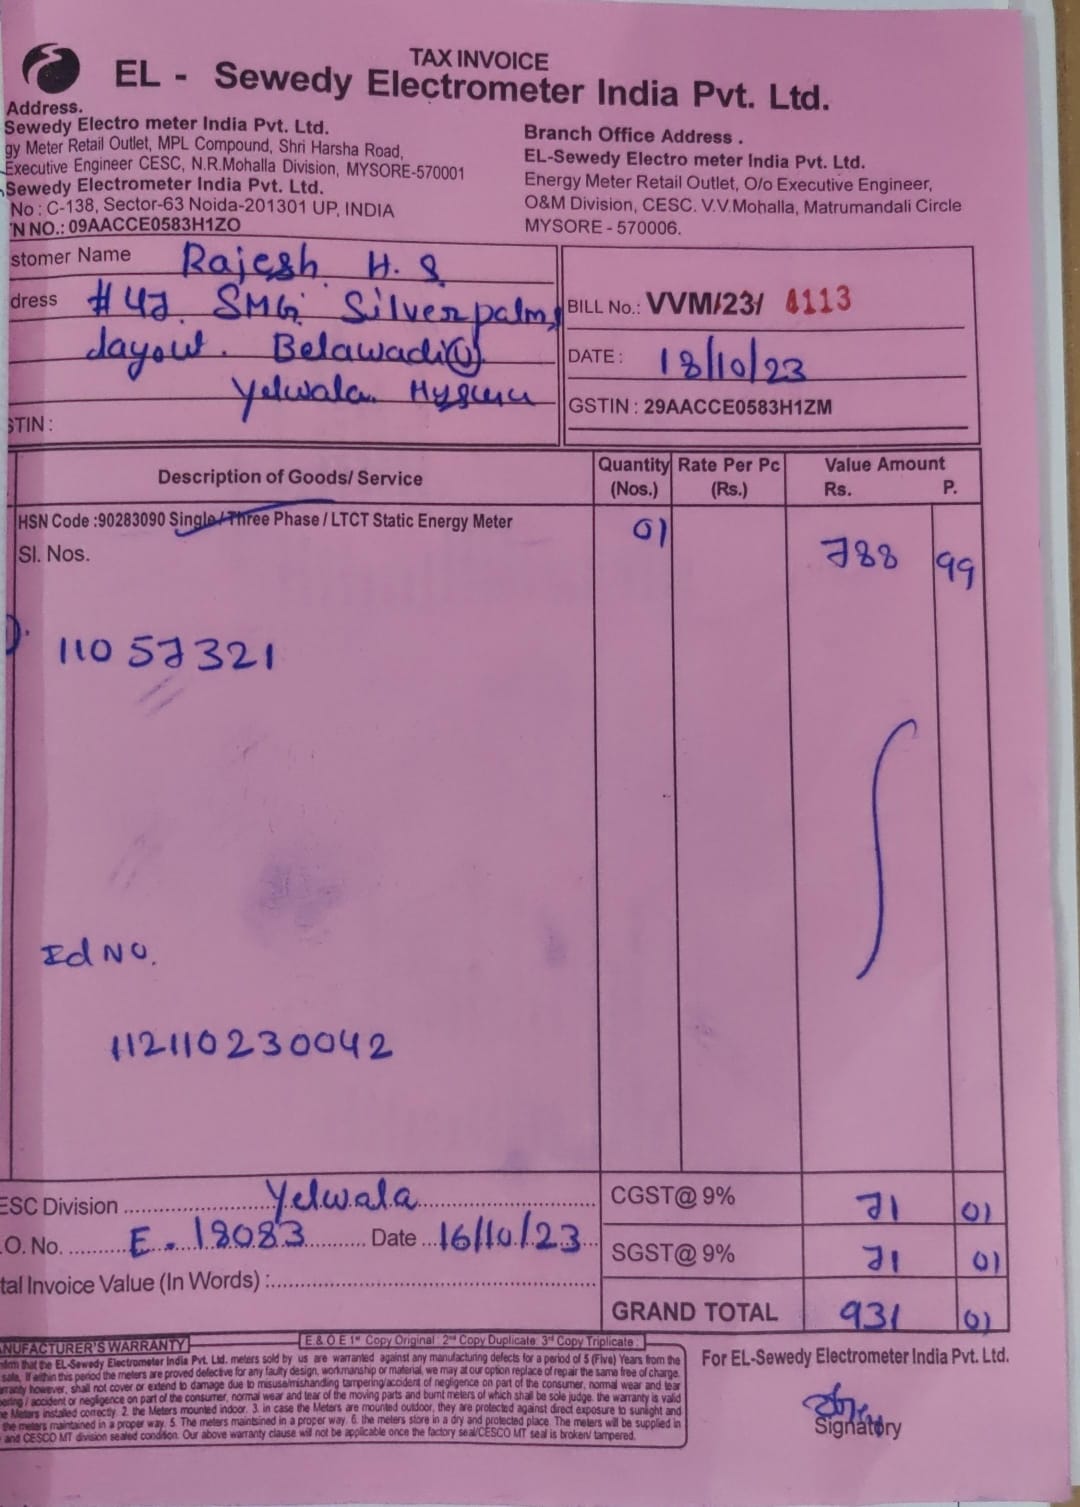 TAX INVOICE
EL - Sewedy Electrometer India Pvt. Ltd.
Address.
Sewedy Electro meter India Pvt. Ltd.
gy Meter Retail Outlet, MPL Compound, Shri Harsha Road,
Executive Engineer CESC, N.R.Mohalla Division, MYSORE-570001
Sewedy Electrometer India Pvt. Ltd.
No : C-138, Sector-63 Noida-201301 UP, INDIA
N NO.: 09AACCE0583H1ZO
Branch Office Address .
EL-Sewedy Electro meter India Pvt. Ltd.
Energy Meter Retail Outlet, O/o Executive Engineer,
O&M Division, CESC. V.V.Mohalla, Matrumandali Circle
MYSORE - 570006.
stomer Name Rajesh. H. S.
dress #47. SMG; Silverpalms
layout. Belawadi(V).
Yelwala.
STIN :
BILL No.: VVM/23/ 4113
DATE : 18/10/23
GSTIN : 29AACCE0583H1ZM
Description of Goods/ Service Quantity (Nos.) Rate Per Pc (Rs.) Value Amount Rs. P.
HSN Code :90283090 Single/Three Phase / LTCT Static Energy Meter 01 788 99
Sl. Nos.
11057321
Id NO.
112110230042
ESC Division Yelwala CGST@ 9% 71 01
.O. No. E. 18083 Date 16/10/23 SGST@ 9% 71 01
tal Invoice Value (In Words) : GRAND TOTAL 931 01
E & O E 1st Copy Original 2nd Copy Duplicate 3rd Copy Triplicate
NUFACTURER'S WARRANTY
that the EL-Sewedy Electrometer India Pvt. Ltd. meters sold by us are warranted against any manufacturing defects for a period of 5 (Five) Years from the
sale, If within this period the meters are proved defective for any faulty design, workmanship or material, we may at our option replace of repair the same free of charge.
however, shall not cover or extend to damage due to misuse/mishandling tampering/accident of negligence on part of the consumer, normal wear and tear
/ accident or negligence on part of the consumer, normal wear and tear of the moving parts and burnt meters of which shall be sole judge. the warranty is valid
Meters installed correctly. 2. the Meters mounted indoor. 3. in case the Meters are mounted outdoor, they are protected against direct exposure to sunlight and
the meters maintained in a proper way. 5. The meters maintained in a proper way. 6. the meters store in a dry and protected place. The meters will be supplied in
and CESCO MT division sealed condition. Our above warranty clause will not be applicable once the factory seal/CESCO MT seal is broken/ tampered.
For EL-Sewedy Electrometer India Pvt. Ltd.
Signatory